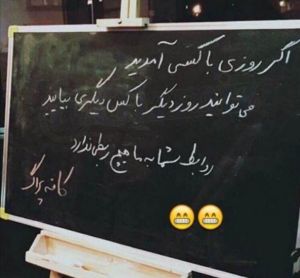 اگر روزی با کسی آمدید
می‌توانید روز دیگر با کس دیگری بیایید
روابط شما به ما هیچ ربطی ندارد
کافه پراگ